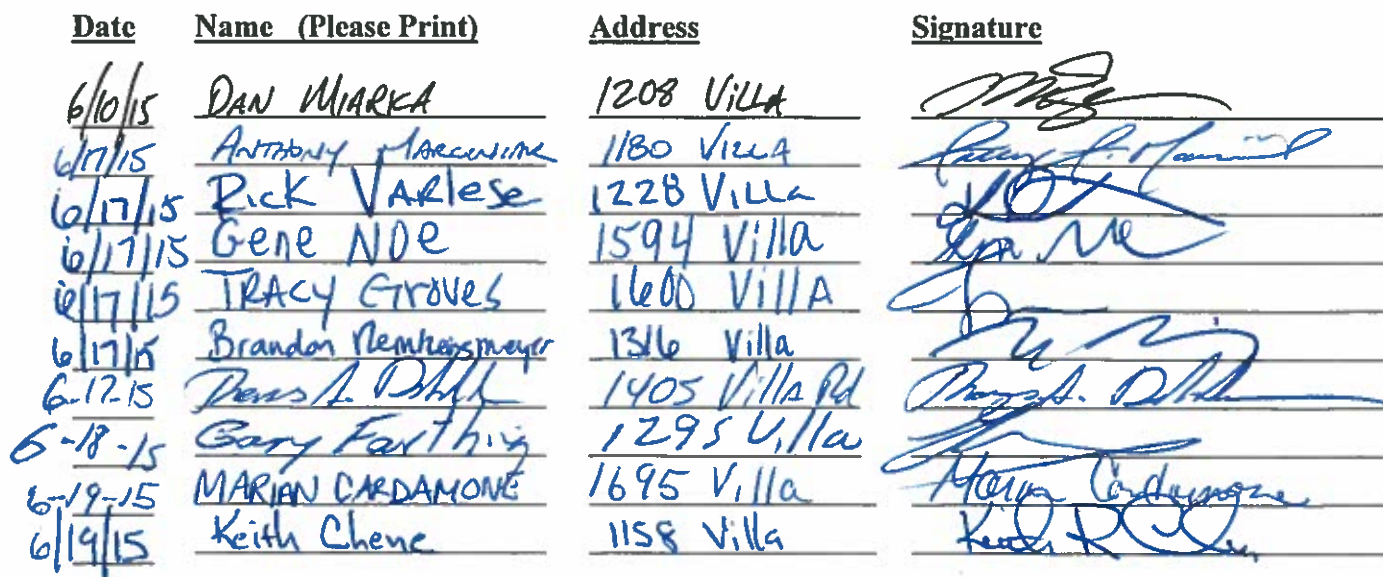 Date Name (Please Print) Address Signature
6/10/15 DAN MIARKA 1208 VillA
6/17/15 ANTHONY MARCINIAK 1180 VILLA
6/17/15 Rick VARlese 1228 VillA
6/17/15 Gene NOE 1594 Villa Gene Noe
6/17/15 TRACY GroVes 1600 VillA
6/17/15 Brandon 1316 Villa
6-17-15 1405 VillA Rd
6-18-15 Gary Farthing 1295 Villa
6-19-15 MARIAN CARDAMONE 1695 Villa Marian Cardamone
6/19/15 Keith Chene 1158 Villa Keith R